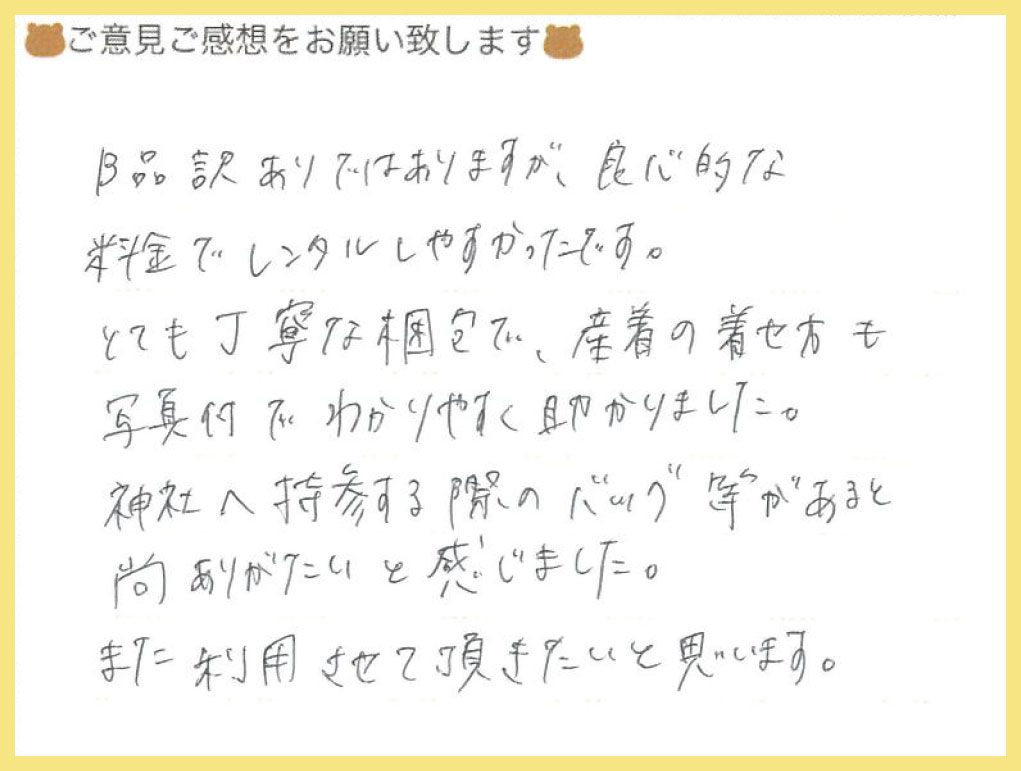 ご意見ご感想をお願い致します
B品訳ありではありますが、良心的な
料金でレンタルしやすかったです。
とても丁寧な梱包で、産着の着せ方も
写真付でわかりやすく助かりました。
神社へ持参する際のバッグ等があると
尚ありがたいと感じました。
また利用させて頂きたいと思います。